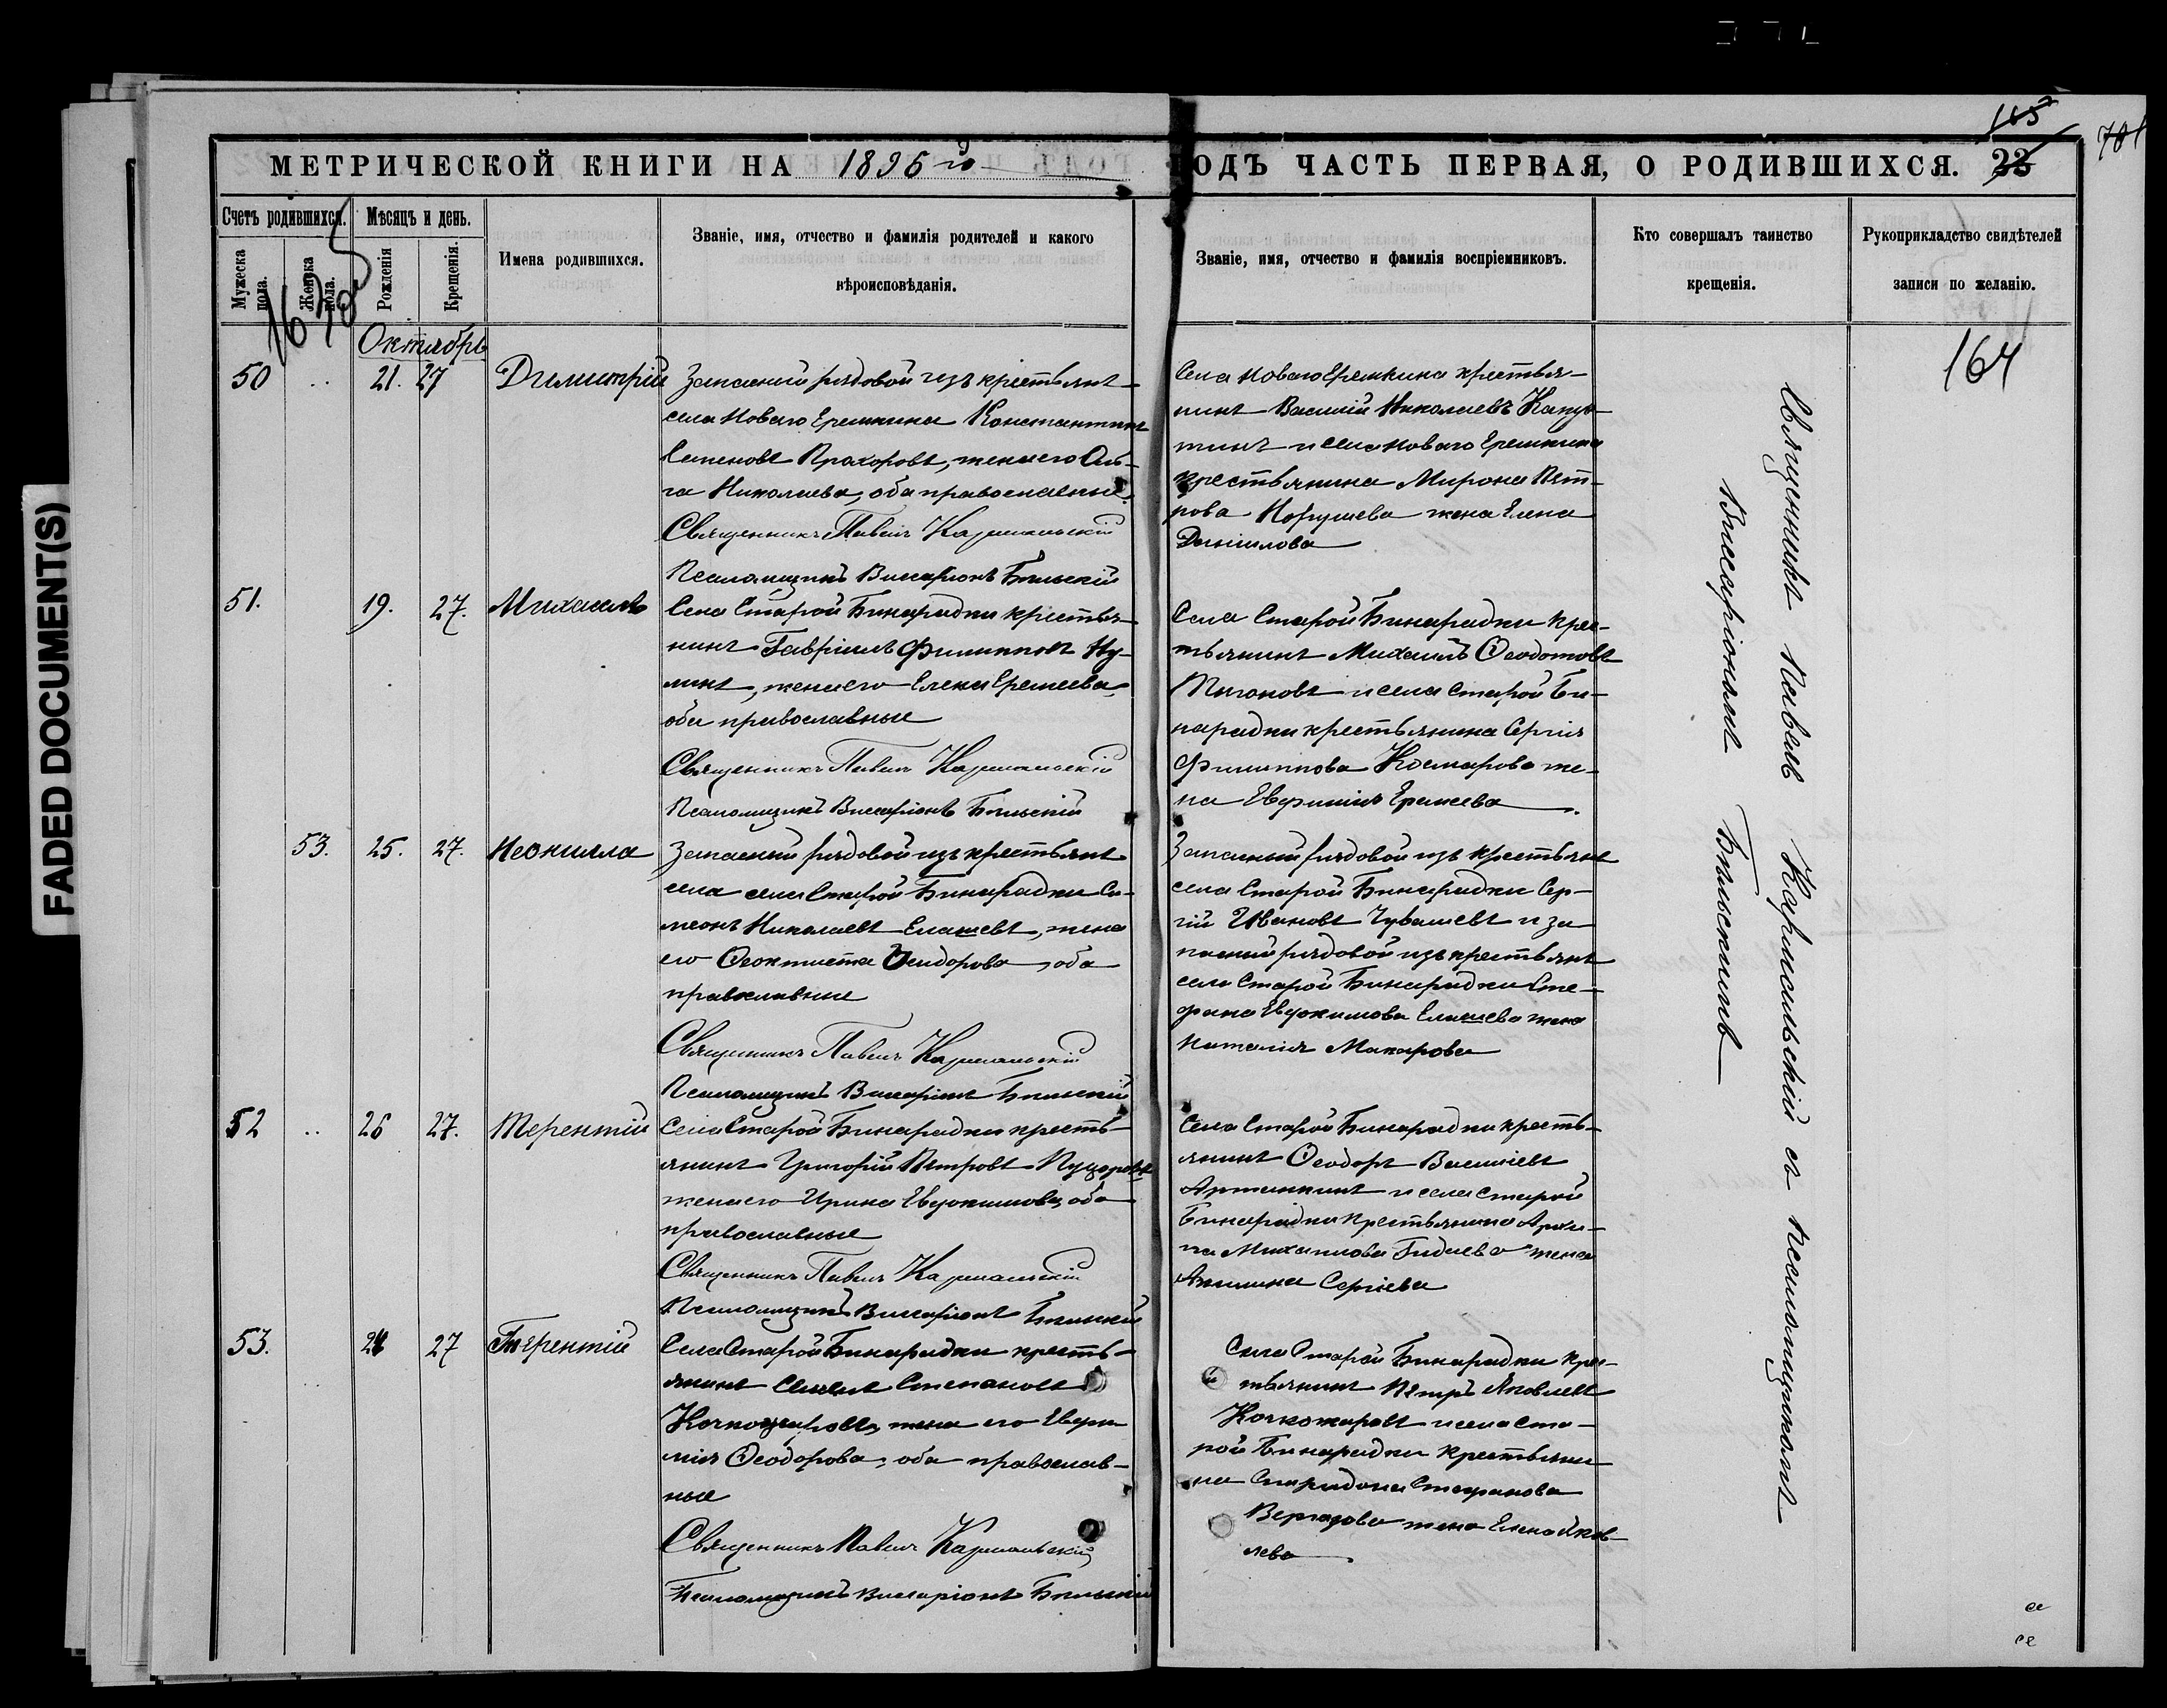 FADED DOCUMENT(S)
165
701
МЕТРИЧЕСКОЙ КНИГИ НА 1896 го
ГОДЪ ЧАСТЬ ПЕРВАЯ, О РОДИВШИХСЯ. 23
Счетъ родившихся.
Мужеска пола.
Женска пола.
Мѣсяцъ и день.
Рожденія
Крещенія.
Имена родившихся.
Званіе, имя, отчество и фамилія родителей и какого
вѣроисповѣданія.
Званіе, имя, отчество и фамилія воспріемниковъ.
Кто совершалъ таинство
крещенія.
Рукоприкладство свидѣтелей
записи по желанію.
164
Октябрь
50 .. 21. 27 Димитрій
Запасный рядовой изъ крестьянъ
села Новаго Еремкина Константинъ
Семеновъ Прохоровъ, жена его Оль-
га Николаева, оба православные.
Священникъ Павелъ Кармальскій
Псаломщикъ Виссаріонъ Бѣльскій
Села Новаго Еремкина крестья-
нинъ Василій Николаевъ Капус-
тинъ и села Новаго Еремкина
крестьянина Мирона Пет-
рова жена Елена
Даніилова
51. 19. 27. Михаилъ
Села Старой Бинарадки крестья-
нинъ Гавріилъ Филипповъ Ну-
линъ, жена его Елена Еремеева,
оба православные
Священникъ Павелъ Кармальскій
Псаломщикъ Виссаріонъ Бѣльскій
Села Старой Бинарадки крес-
тьянинъ Михаилъ Ѳеодотовъ
и села Старой Би-
нарадки крестьянина Сергія
Филиппова Космарова же-
на Евфимія Еремеева.
53. 25. 27. Неонилла
Запасный рядовой изъ крестьянъ
села села Старой Бинарадки Си-
меонъ Николаевъ Елашевъ, жена
его Ѳеоктиста Ѳеодорова, оба
православные
Священникъ Павелъ Кармальскій
Псаломщикъ Виссаріонъ Бѣльскій
Запасный рядовой изъ крестьянъ
села Старой Бинарадки Сер-
гій Ивановъ Чувашевъ и за-
пасный рядовой изъ крестьянъ
села Старой Бинарадки Сте-
фана Евдокимова Елашева жена
Наталія Макарова
52 .. 26 27. Терентій
Села Старой Бинарадки кресть-
янинъ Григорій Петровъ
жена его Ирина Евдокимова, оба
православные
Священникъ Павелъ Кармальскій
Псаломщикъ Виссаріонъ Бѣльскій
Села Старой Бинарадки кресть-
янинъ Ѳеодоръ Василіевъ
Артишкинъ и села Старой
Бинарадки крестьянина Архи-
па Михаилова жена
Акилина Сергіева
53. .. 24 27 Терентій
Села Старой Бинарадки кресть-
янинъ Стефановъ
жена его Евфи-
мія Ѳеодорова, оба православ-
ные
Священникъ Павелъ Кармальскій
Псаломщикъ Виссаріонъ Бѣльскій
Села Старой Бинарадки крес-
тьянинъ Петръ Яковлевъ
Кочкожаровъ и села Ста-
рой Бинарадки крестьяни-
на Спиридона Стефанова
жена Елена Яков-
лева
Священникъ Павелъ Кармальскій съ псаломщикомъ
Виссаріономъ Бѣльскимъ